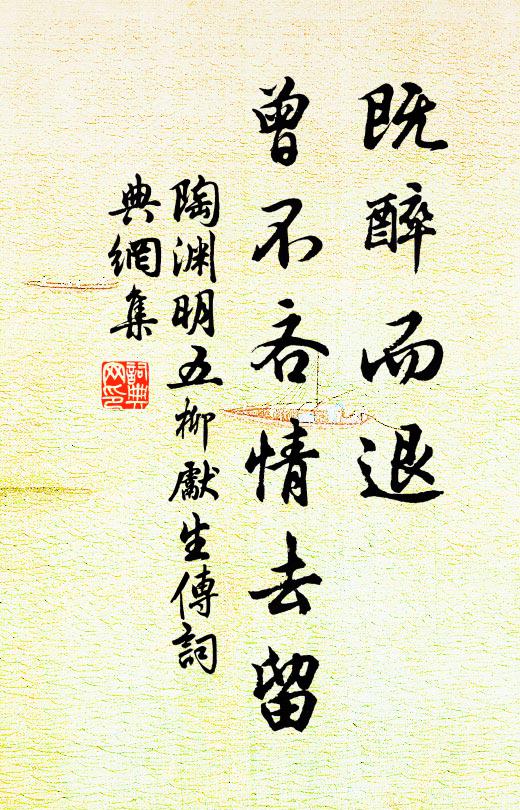 既醉而退
曾不吝情去留
陶渊明五柳獻生傳詞
典網集
詞典
网印